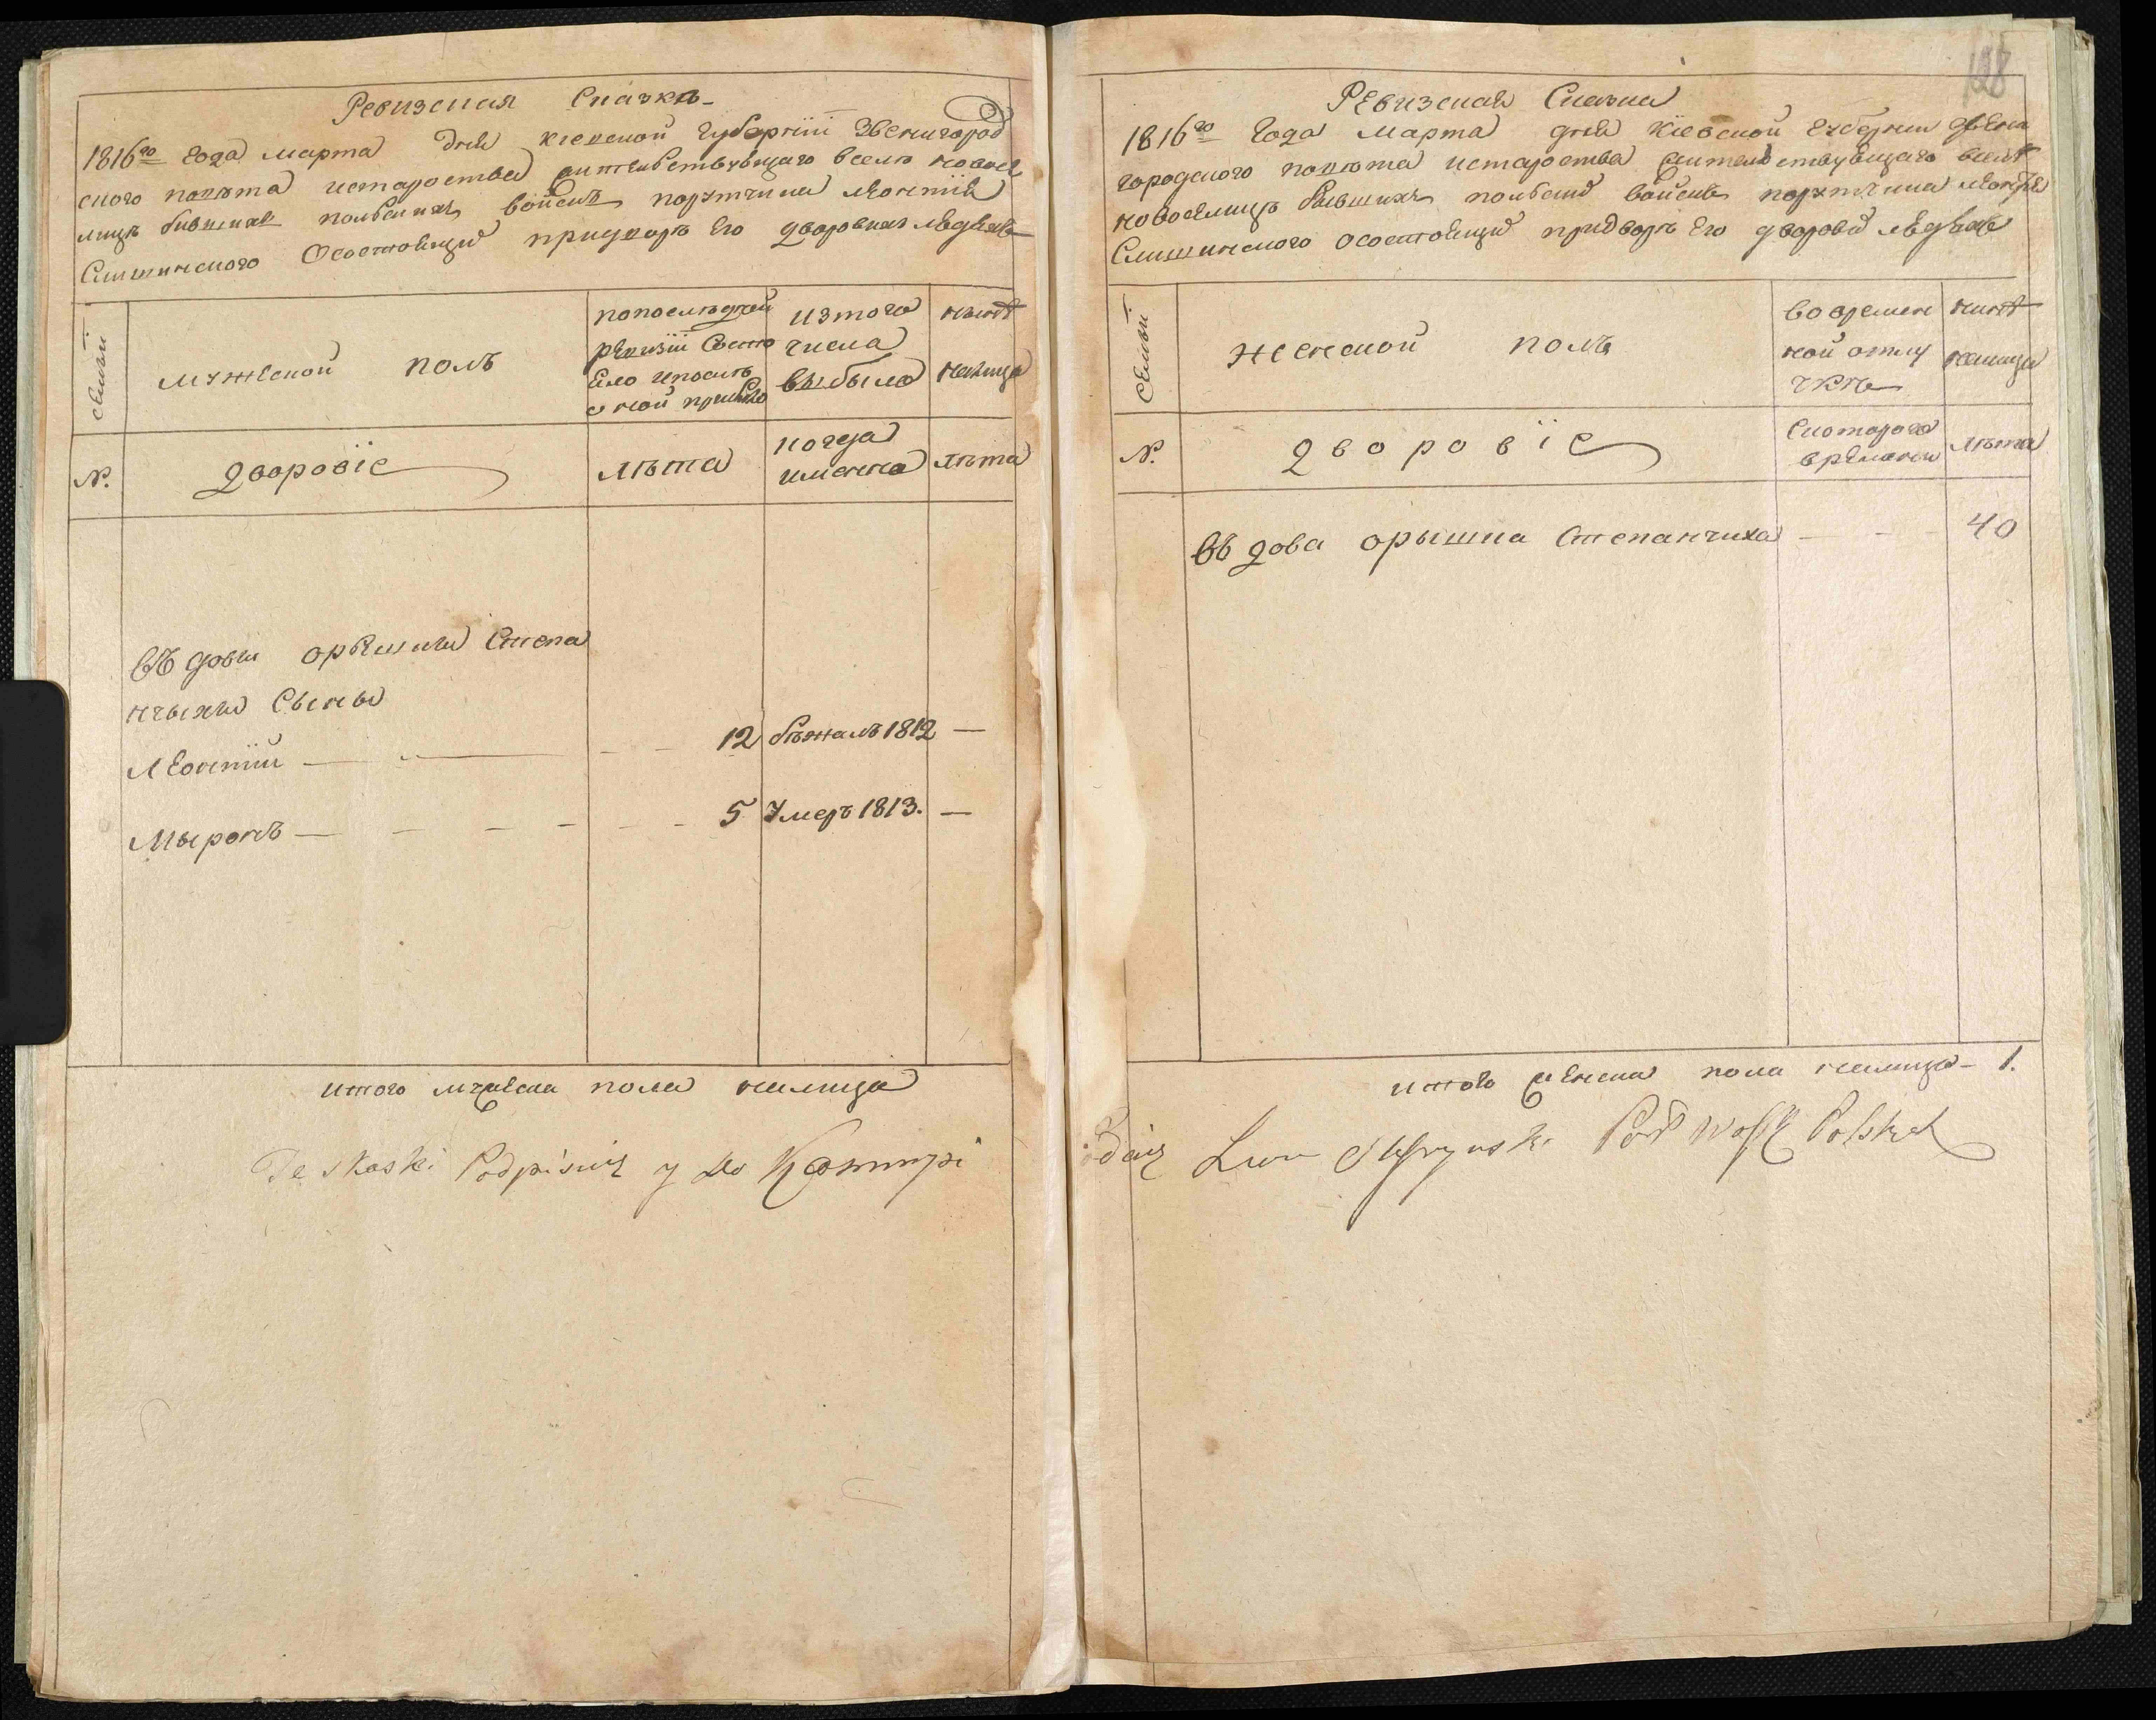 Ревизская Сказка
1816го Года Марта Дня киевской Губернїи Звенигород
ского повѣта истароства жительствующаго вселѣ новосе
лицѣ бившихъ польскихъ войскъ порутчика Леонтія
Слишинского Осостоящих придворѣ Его дворовихъ людяхъ
семьи
мужеской полъ
попослѣдней
ревизїи Состо
яло ипослѣ
оной прибыло
изтого
числа
выбыло
нынѣ
налицо
№.
дворовїе
лѣта
когда
именно
лѣта
въдовы орышки Степа
нчыхы Сыны
Леонтїй
12 бѣжалъ 1812 —
Мыронъ — — — — — — 5 Умеръ 1813. —
итого мужеска пола налицо
Te skaski Podpisuię y do
128
Ревизская Сказка
1816го Года Марта дня Кїевской Губернии Звени
городского повѣта истароства жительствующаго вселѣ
новоселицѣ бывшихъ польских войскъ порутчика Леонтія
Слишинского Осостоящих придворѣ Его дворових людяхъ
семьи
женской полъ
вовремен
ной отлу
чкѣ
нинѣ
налицо
№.
дворовїе
Скоторого
времени
лѣта
въдова орышка Степанчиха — — 40
итого женска пола налицо — 1.
Podaię Leon Polskich